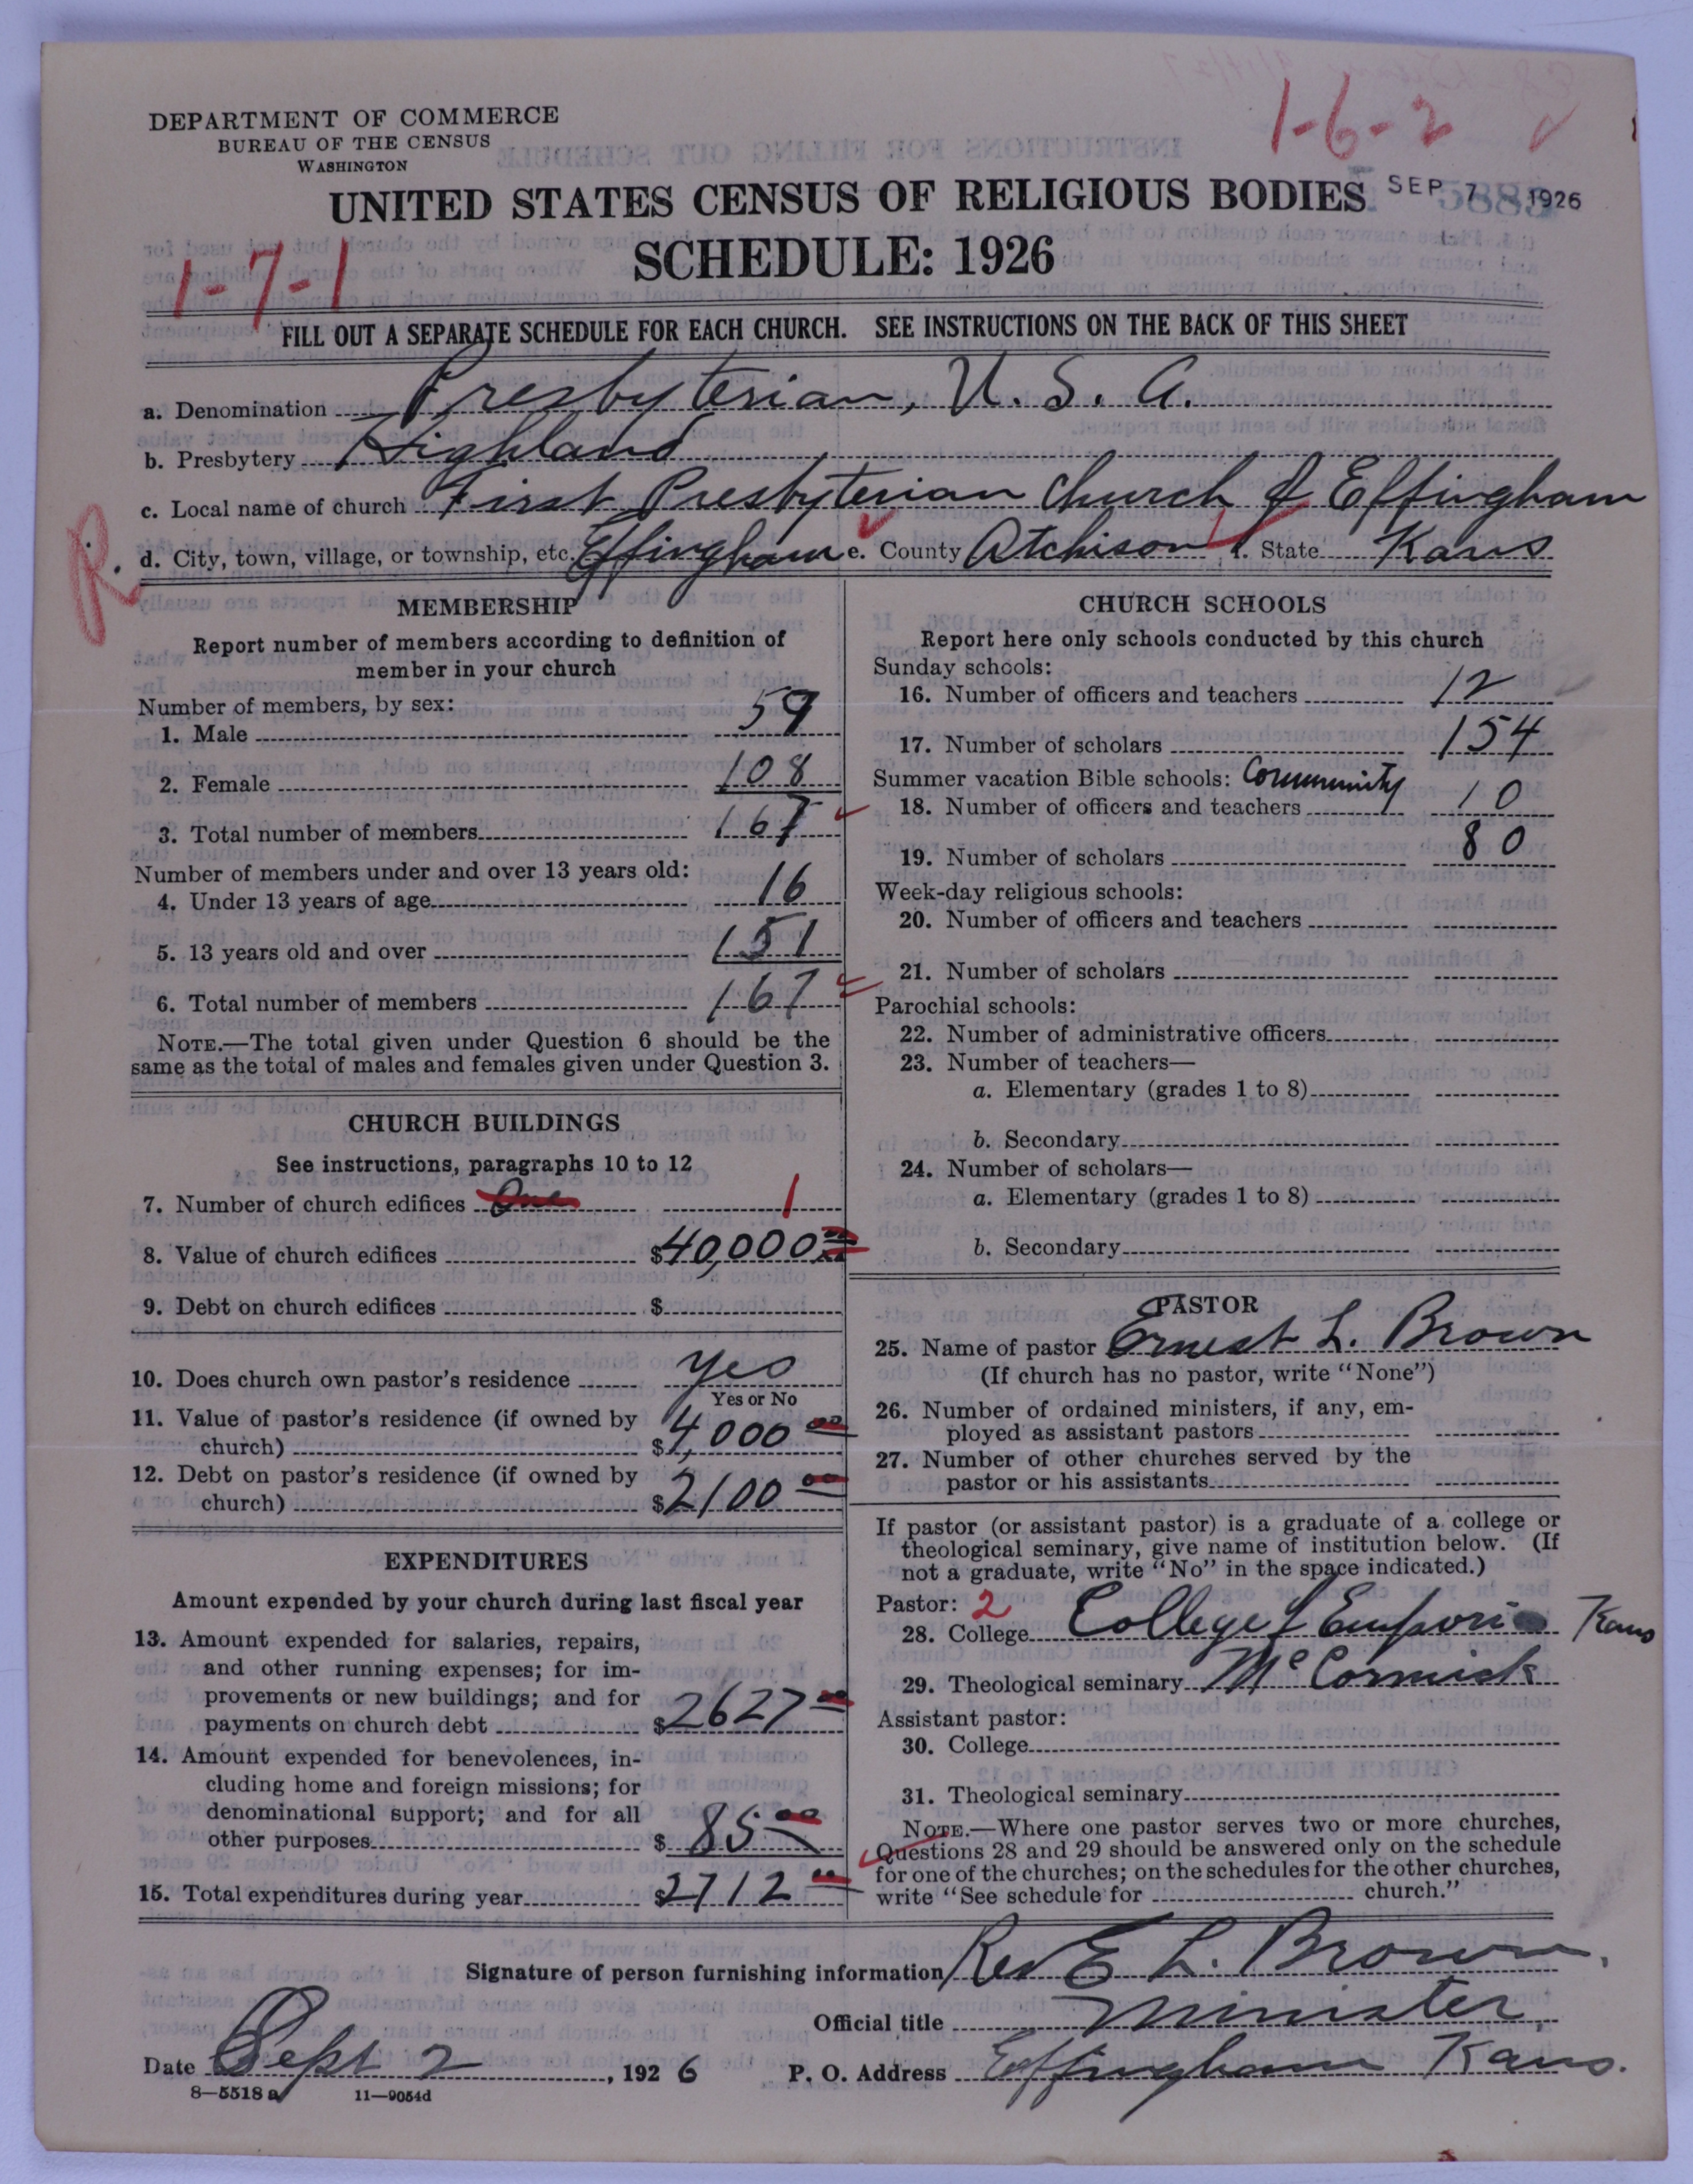 1-6-2
DEPARTMENT OF COMMERCE
BUREAU OF THE CENSUS
WASHINGTON
UNITED STATES CENSUS OF RELIGIOUS BODIES
SEP 7 1926
SCHEDULE: 1926
1-7-1
FILL OUT A SEPARATE SCHEDULE FOR EACH CHURCH. SEE INSTRUCTIONS ON THE BACK OF THIS SHEET
a. Denomination Presbyterian, U. S. A.
b. Presbytery Highland
c. Local name of church First Presbyterian Church of Effingham
R.
d. City, town, village, or township, etc. Effingham e. County Atchison f. State Kans
MEMBERSHIP
Report number of members according to definition of
member in your church
Number of members, by sex:
1. Male 59
2. Female 108
3. Total number of members 167
Number of members under and over 13 years old:
4. Under 13 years of age 16
5. 13 years old and over 151
6. Total number of members 167
NOTE.—The total given under Question 6 should be the
same as the total of males and females given under Question 3.
CHURCH BUILDINGS
See instructions, paragraphs 10 to 12
7. Number of church edifices One 1
8. Value of church edifices $40,000 00
9. Debt on church edifices $
10. Does church own pastor's residence yes
Yes or No
11. Value of pastor's residence (if owned by
church) $4,000 00
12. Debt on pastor's residence (if owned by
church) $2100 00
EXPENDITURES
Amount expended by your church during last fiscal year
13. Amount expended for salaries, repairs,
and other running expenses; for im-
provements or new buildings; and for
payments on church debt $2627 00
14. Amount expended for benevolences, in-
cluding home and foreign missions; for
denominational support; and for all
other purposes $85 00
15. Total expenditures during year $2712 00
CHURCH SCHOOLS
Report here only schools conducted by this church
Sunday schools:
16. Number of officers and teachers 12
17. Number of scholars 154
Summer vacation Bible schools: Community
18. Number of officers and teachers 10
19. Number of scholars 80
Week-day religious schools:
20. Number of officers and teachers
21. Number of scholars
Parochial schools:
22. Number of administrative officers
23. Number of teachers—
a. Elementary (grades 1 to 8)
b. Secondary
24. Number of scholars—
a. Elementary (grades 1 to 8)
b. Secondary
PASTOR
25. Name of pastor Ernest L. Brown
(If church has no pastor, write "None")
26. Number of ordained ministers, if any, em-
ployed as assistant pastors
27. Number of other churches served by the
pastor or his assistants
If pastor (or assistant pastor) is a graduate of a college or
theological seminary, give name of institution below. (If
not a graduate, write "No" in the space indicated.)
Pastor: 2
28. College College of Emporia Kans
29. Theological seminary McCormick
Assistant pastor:
30. College
31. Theological seminary
NOTE.—Where one pastor serves two or more churches,
Questions 28 and 29 should be answered only on the schedule
for one of the churches; on the schedules for the other churches,
write "See schedule for church."
Signature of person furnishing information Rev E L. Brown.
Official title Minister
Date Sept 2, 1926 P. O. Address Effingham Kans.
8—5518 a 11—9054d